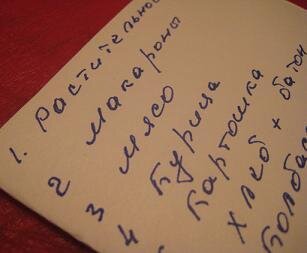 1. Растительное
2 Макароны
3 Мясо
4 Курица
Картошка
Хлеб + батон